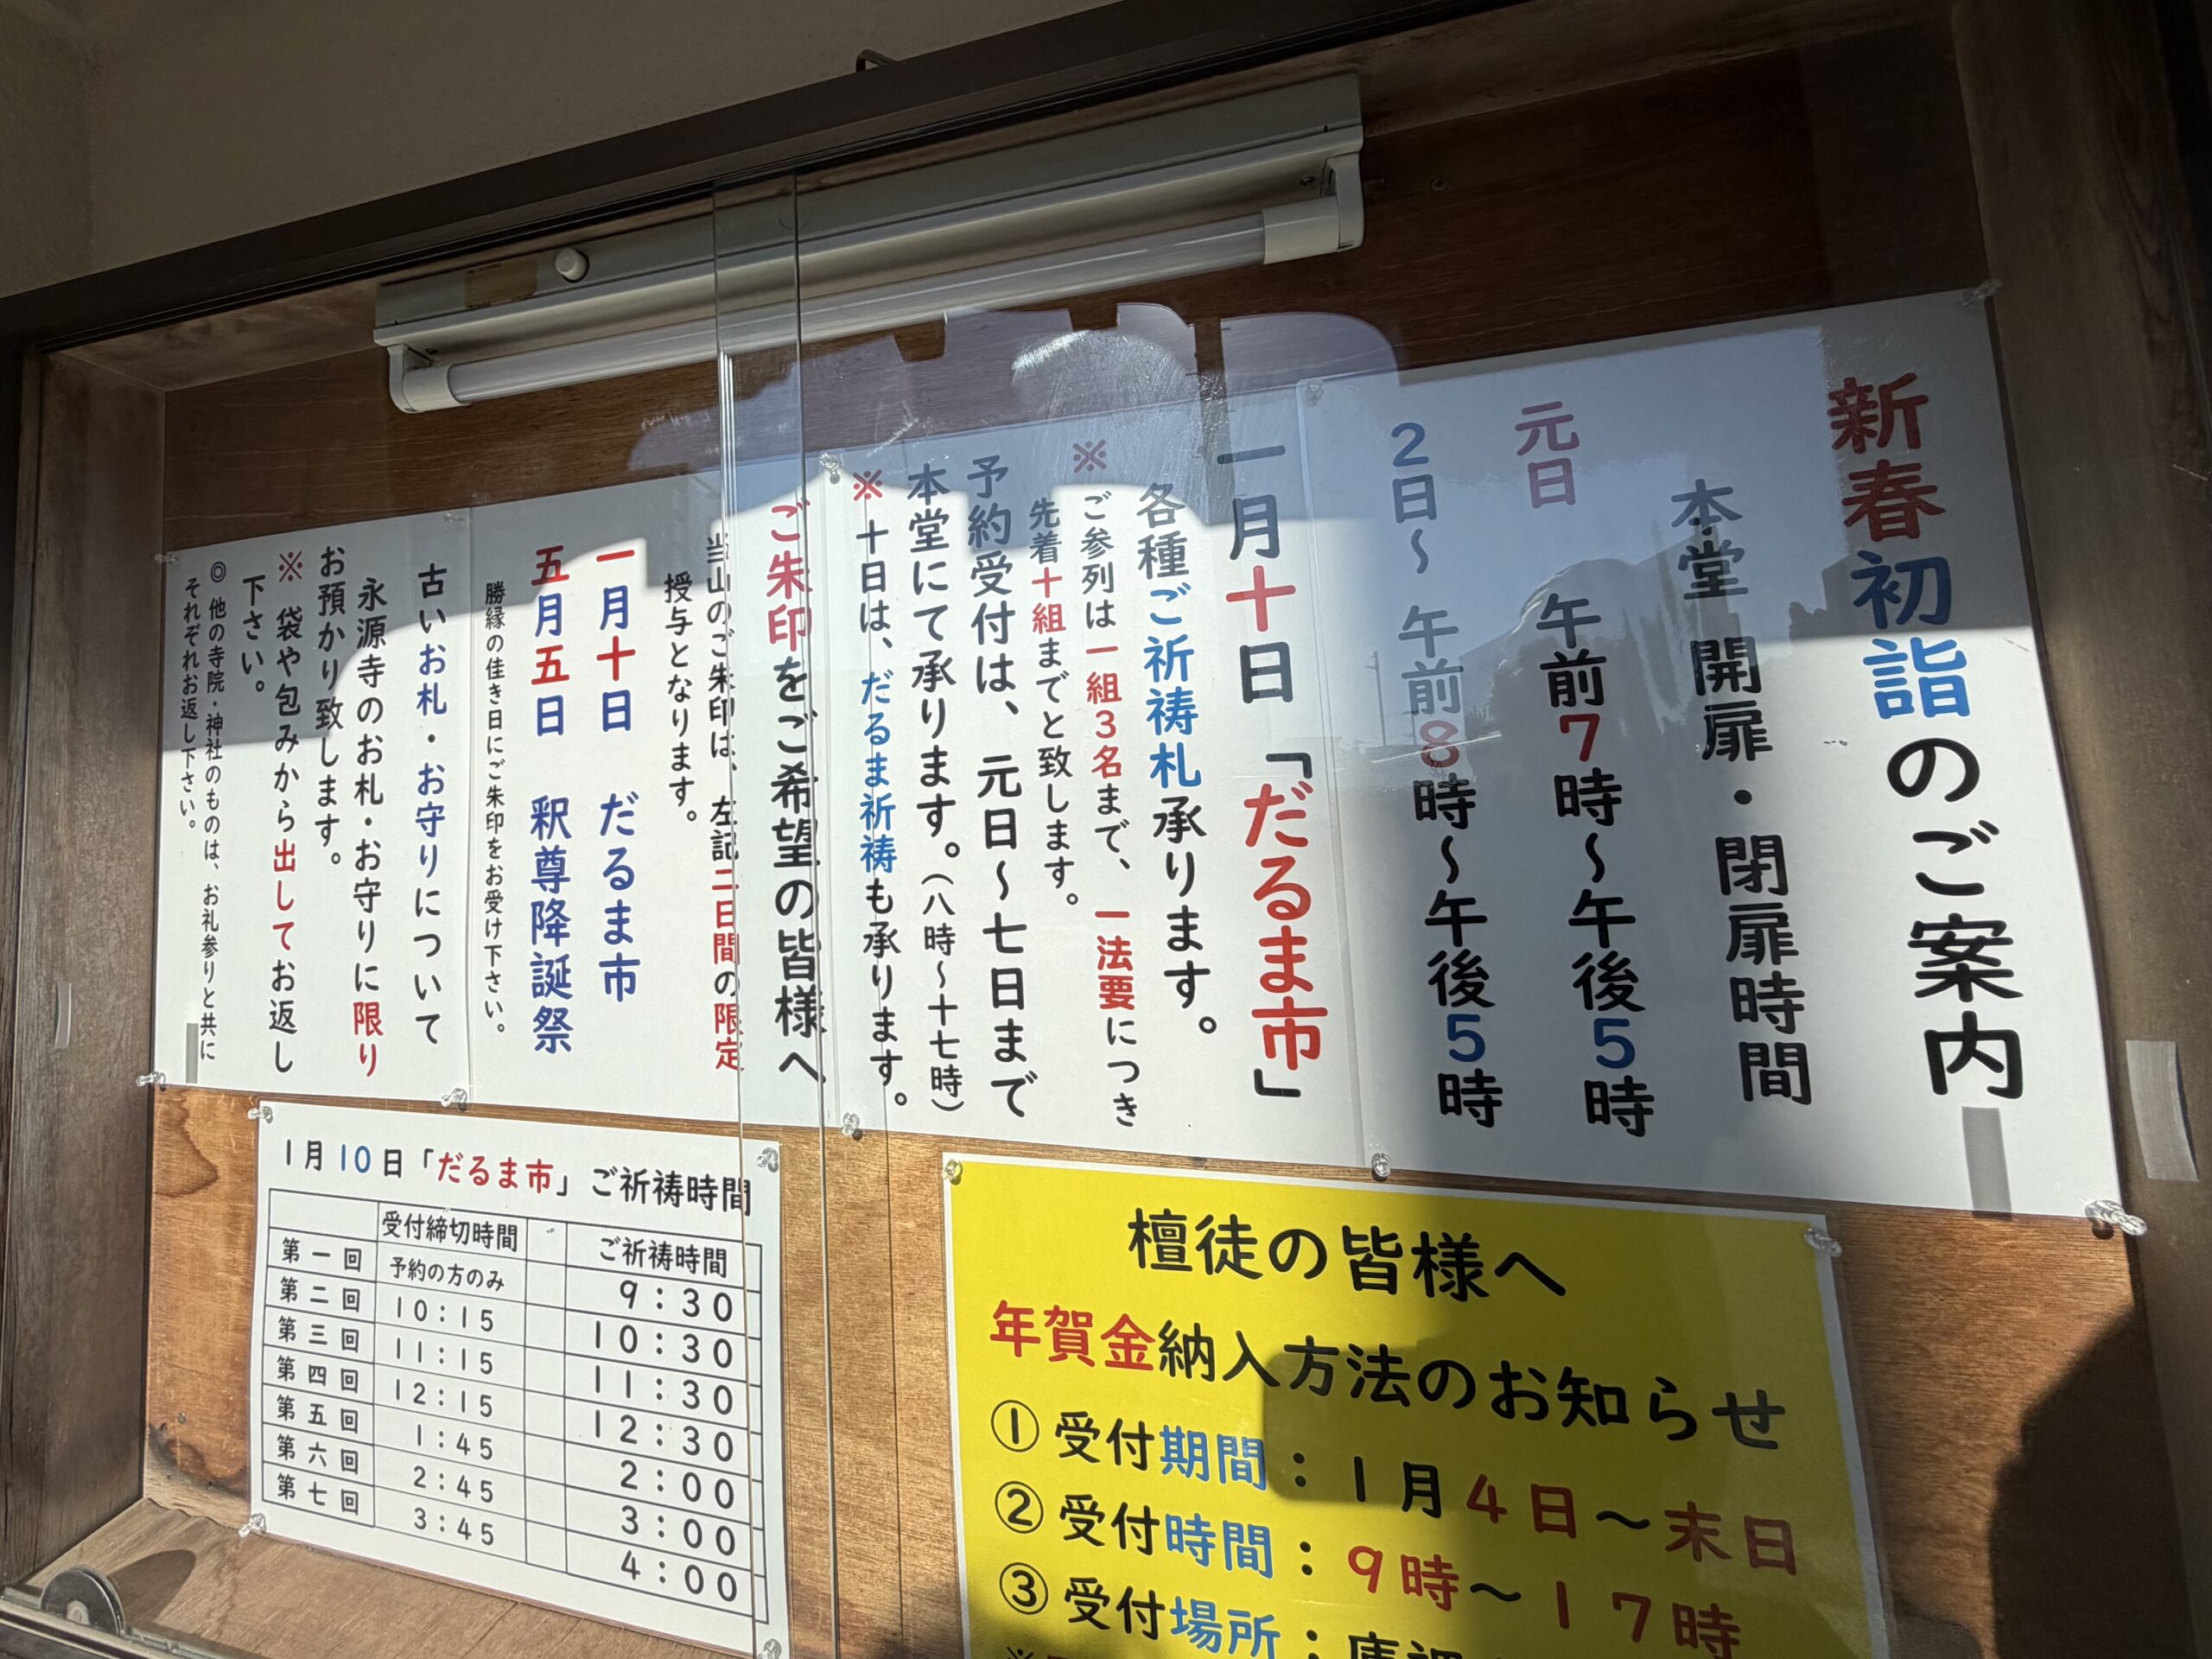 新春初詣のご案内
本堂 開扉・閉扉時間
元日 午前7時～午後5時
2日～ 午前8時～午後5時
一月十日「だるま市」
各種ご祈祷札承ります。
※ご参列は一組3名まで、一法要につき
先着十組までと致します。
予約受付は、元日～七日まで
本堂にて承ります。(八時～十七時)
※十日は、だるま祈祷も承ります。
ご朱印をご希望の皆様へ
当山のご朱印は、左記二日間の限定
授与となります。
一月十日 だるま市
五月五日 釈尊降誕祭
勝縁の佳き日にご朱印をお受け下さい。
古いお札・お守りについて
永源寺のお札・お守りに限り
お預かり致します。
※袋や包みから出してお返し
下さい。
◎他の寺院・神社のものは、お礼参りと共に
それぞれお返し下さい。
1月10日「だるま市」ご祈祷時間
受付締切時間 ご祈祷時間
第一回 予約の方のみ 9:30
第二回 10:15 10:30
第三回 11:15 11:30
第四回 12:15 12:30
第五回 1:45 2:00
第六回 2:45 3:00
第七回 3:45 4:00
檀徒の皆様へ
年賀金納入方法のお知らせ
①受付期間:1月4日～末日
②受付時間:9時～17時
③受付場所:庫裡